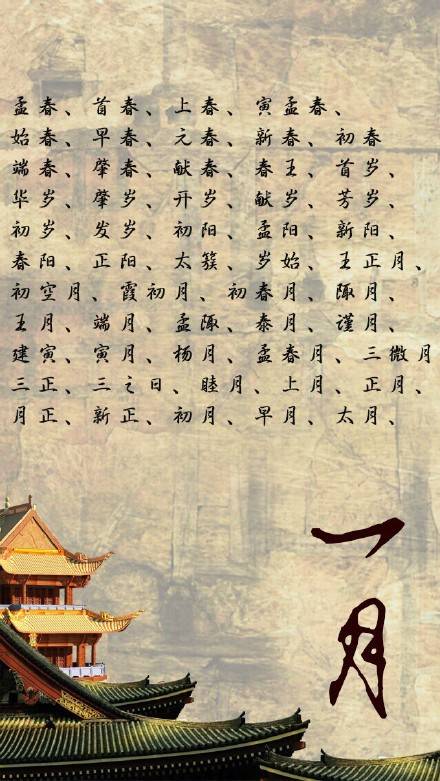 孟春、首春、上春、寅孟春、
始春、早春、元春、新春、初春
端春、肇春、献春、春王、首岁、
华岁、肇岁、开岁、献岁、芳岁、
初岁、发岁、初阳、孟阳、新阳、
春阳、正阳、太簇、岁始、王正月、
初空月、霞初月、初春月、陬月、
王月、端月、孟陬、泰月、谨月、
建寅、寅月、杨月、孟春月、三微月
三正、三之日、睦月、上月、正月、
月正、新正、初月、早月、太月、
一月